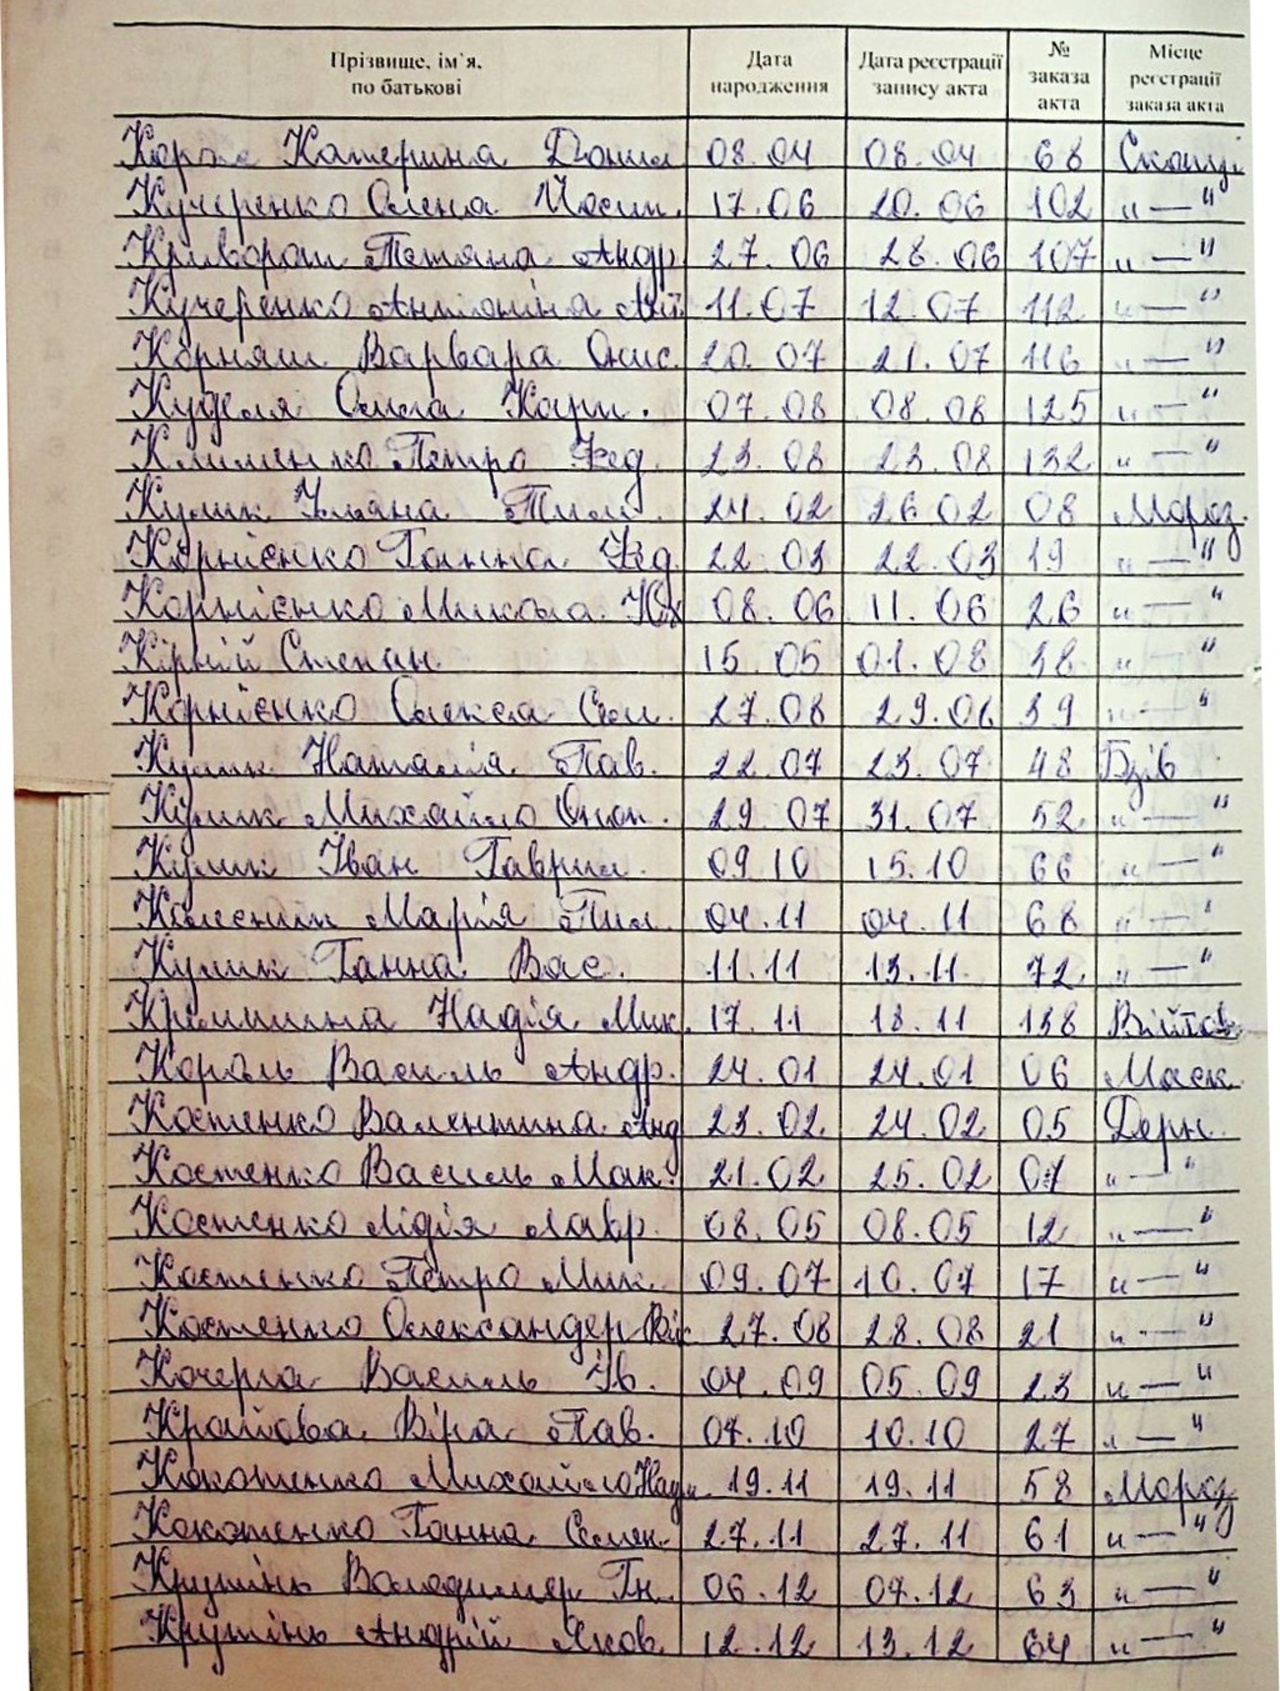 Прізвище, ім`я, по батькові Дата народження Дата реєстрації запису акта № заказа акта Місце реєстрації заказа акта
Катерина Данил 08.04 08.04 68 Скопці
Кучеренко Олена Йосип. 17.06 20.06 102 „ — "
Криворот Тетяна Андр 27.06 28.06 107 „ — "
Кучеренко Антоніна 11.07 12.07 112 „ — "
Корняш Варвара Онис. 20.07 21.07 116 „ — "
Куделя Ольга Карп. 07.08 08.08 125 „ — "
Клименко Петро Фед. 23.08 23.08 132 „ — "
Кулик Уляна Тим. 24.02 26.02 08 Мороз.
Корнієнко Ганна Фед. 22.03 22.03 19 „ — "
Корнієнко Микола Юх 08.06 11.06 26 „ — "
Кірпій Степан 15.05 01.08 38 „ — "
Корнієнко Олекса Сем. 27.08 29.08 39 „ — "
Кулик Наталія Пав. 22.07 23.07 48 Бзів
Кулик Михайло Оноп. 29.07 31.07 52 „ — "
Кулик Іван Гаврил. 09.10 15.10 66 „ — "
Марія Пил. 04.11 04.11 68 „ — "
Кулик Ганна Вас. 11.11 13.11 72 „ — "
Надія Мик. 17.11 18.11 138 Війтов
Король Василь Андр. 24.01 24.01 06 Маск.
Костенко Валентина Анд 23.02 24.02 05 Дерн.
Костенко Василь Мак. 21.02 25.02 07 „ — "
Костенко Лідія Лавр. 08.05 08.05 12 „ — "
Костенко Петро Мик. 09.07 10.07 17 „ — "
Костенко Олександер Вік 27.08 28.08 21 „ — "
Кочерга Василь Ів. 04.09 05.09 23 „ — "
Крайова Віра Пав. 07.10 10.10 27 „ — "
Кокотенко Михайло 19.11 19.11 58 Мороз
Кокотенко Ганна Семен. 27.11 27.11 61 „ — "
Крутінь Володимер Гн. 06.12 07.12 63 „ — "
Крутінь Андрій Яков. 12.12 13.12 64 „ — "